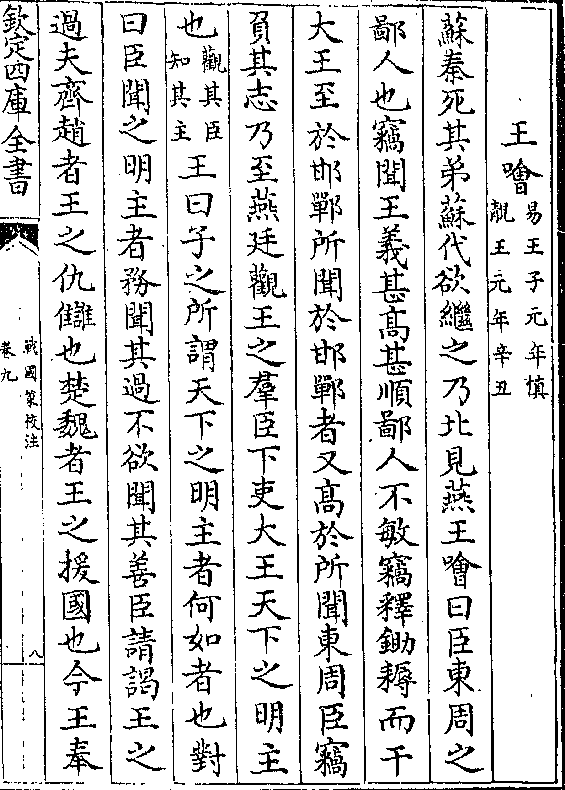 王噲易王子元年慎
靚王元年辛丑
蘇秦死其弟蘇代欲繼之乃北見燕王噲曰臣東周之
鄙人也竊聞王義甚髙甚順鄙人不敏竊釋鋤耨而干
大王至於邯鄲所聞於邯鄲者又髙於所聞東周臣竊
負其志乃至燕廷觀王之羣臣下吏大王天下之明主
也觀其臣
知其主王曰子之所謂天下之明主者何如者也對
曰臣聞之明主者務聞其過不欲聞其善臣請謁王之
過夫齊趙者王之仇讎也楚魏者王之援國也今王奉
欽定四庫全書
戰國策校注
卷九
八